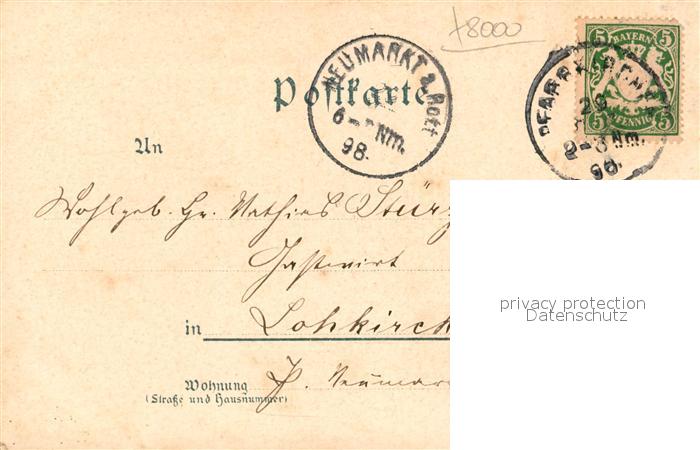 +8000
NEUMARKT a. Rott
6-7 Nm.
98.
BAYERN
5 5
5 PFENNIG 5
29
2-3 Nm.
98.
Postkarte
An
Wohlgeb. Hr. Mathias Stürz
Gastwirt
in Lohkirch
P. Neumar
Wohnung
(Straße und Hausnummer)
privacy protection
Datenschutz